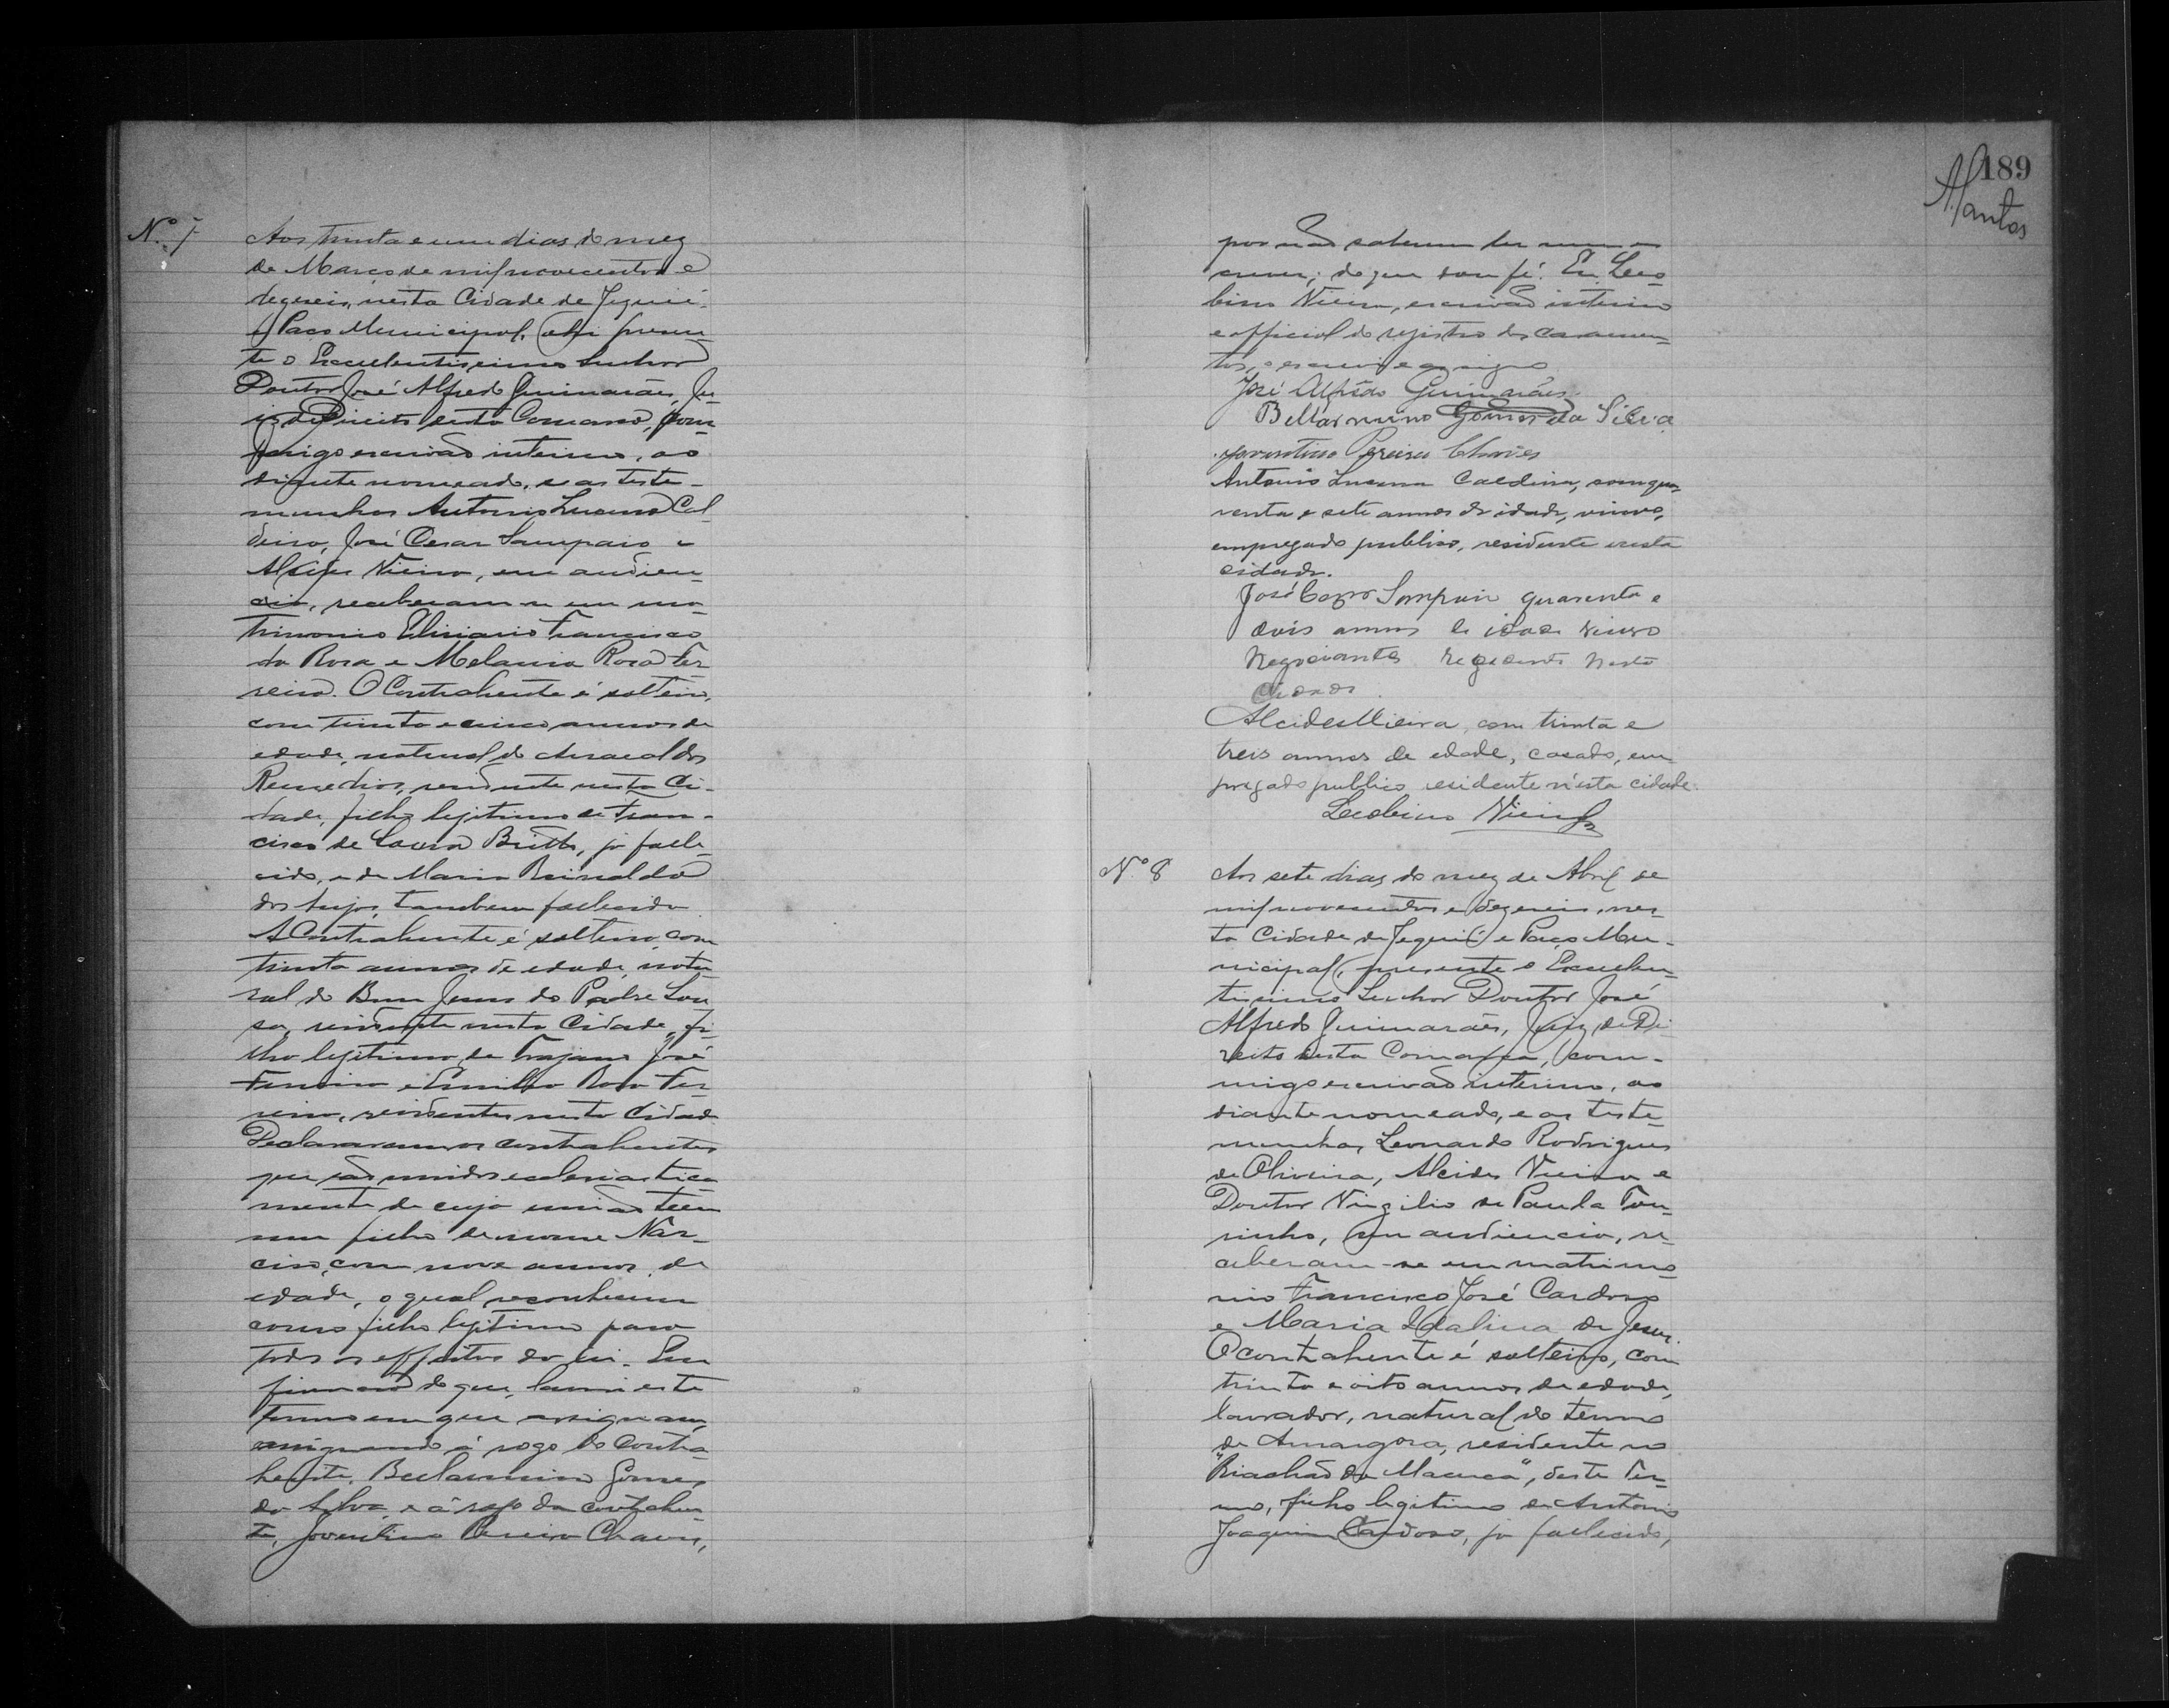 Nº 7
Aos trinta e um dias do mez
de Março de mil novecentos e
dezeseis, nesta Cidade de Jequié
e Paço Municipal, ahi presen-
te o Excellentissimo Senhor
Doutor José Alfredo Guimarães, Ju-
iz de Direito desta Comarca, com-
migo escrivão interino, ao
diante nomeado, e as teste-
munhas Antonio Lucena Cal-
deira, José Cezar Sampaio e
Alcides Vieira, em audien-
cia, receberam-se em ma-
trimonio Elisiario Francisco
da Rosa e Melania Rosa Fer-
reira. O Contrahente é solteiro,
com trinta e cinco annos de
edade, natural do Arraial dos
Remedios, residente nesta Ci-
dade, filho legitimo de Fran-
cisco de Britto, já falle-
cido, e de Maria
dos Anjos, tambem fallecida.
A Contrahente é solteira, com
trinta annos de edade, natu-
ral de Bom Jesus do Padre
residente nesta Cidade, fi-
lha legitima de Trajano José
Ferreira e Emilia Rosa Fer-
reira, residentes nesta Cidade.
Declararam os contrahentes
que são unidos ecclesiastica-
mente de cuja união teem
um filho de nome Nar-
ciso, com nove annos de
edade, o qual reconhecem
como filho legitimo para
todos os effeitos da lei. Em
firmeza do que, lavrei este
termo em que assignam,
assignando á rogo do Contra-
hente, Bellarmino Gomes
da Silva, e á rogo da contrahen-
te, Joventino Pereira Chaves,
189
ASantos
por não saberem ler nem es-
crever; do que dou fé. Eu Leo-
bino Vieira, escrivão interino
e official do registro dos casamen-
tos, o escrevi e assigno
José Alfredo Guimarães.
Bellarmino Gomes da Silva
Joventino Pereira Chaves
Antonio Lucena Caldeira, com qua-
renta e sete annos de idade, viuvo,
empregado publico, residente nesta
cidade.
José Cezar Sampaio quarenta e
dois annos de idade viuvo
Negociante residente nesta
Cidade.
Alcides Vieira, com trinta e
tres annos de edade, casado, em-
pregado publico residente n'esta cidade.
Leobino Vieira
Nº 8
Aos sete dias do mez de Abril de
mil novecentos e dezeseis, nes-
ta Cidade de Jequié e Paço Mu-
nicipal, presente o Excellen-
tissimo Senhor Doutor José
Alfredo Guimarães, Juiz de Di-
reito desta Comarca, com-
migo escrivão interino, ao
diante nomeado, e as teste-
munhas, Leonardo Rodrigues
de Oliveira, Alcides Vieira e
Doutor Virgilio de Paula Tou-
rinho, em audiencia, re-
ceberam-se em matrimo-
nio Francisco José Cardoso
e Maria Idalina de Jesus.
O contrahente é solteiro, com
trinta e oito annos de edade,
lavrador, natural do termo
de Amargosa, residente no
"Riachão da Macuca", deste ter-
mo, filho legitimo de Antonio
Joaquim Cardoso, já fallecido,